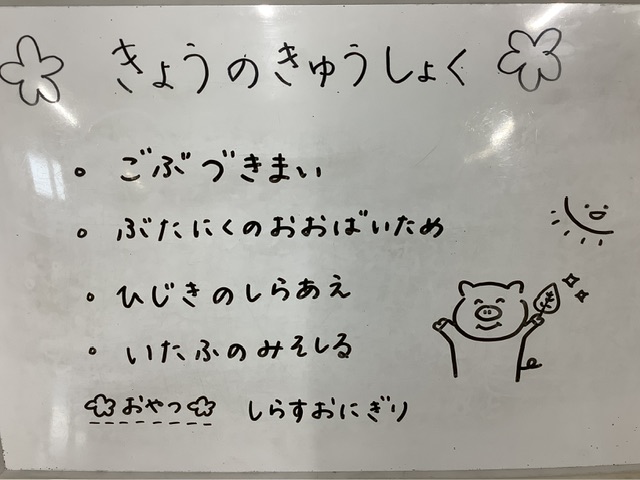 きょうのきゅうしょく
• ごぶづきまい
• ぶたにくのおおばいため
• ひじきのしらあえ
• いたふのみそしる
おやつ しらすおにぎり